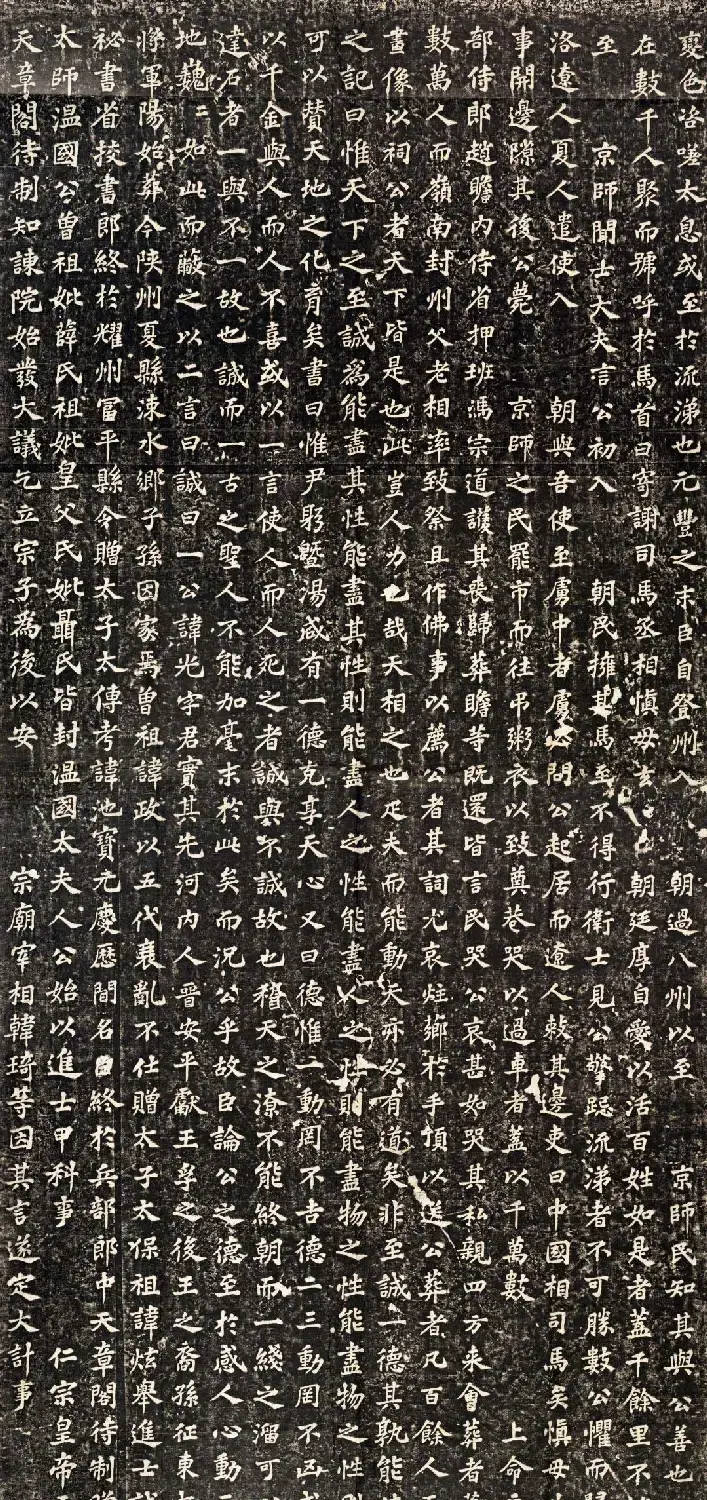 變色咨嗟太息或至於流涕也元豐之末臣自登州入朝過八州以至京師民知其與公善也
在數千人聚而號呼於馬首曰寄謝司馬丞相慎毋去朝廷厚自愛以活百姓如是者蓋千餘里不
至京師聞士大夫言公初入朝民擁其馬至不得行衛士見公擎跽流涕者不可勝數公懼而歸
洛遼人夏人遣使入朝與吾使至虜中者虜必問公起居而遼人敕其邊吏曰中國相司馬矣慎毋
事開邊隙其後公薨京師之民罷市而往弔粥衣以致奠巷哭以過車者蓋以千萬數上命
部侍郎趙瞻內侍省押班馮宗道護其喪歸葬瞻等既還皆言民哭公哀甚如哭其私親四方來會葬者
數萬人而嶺南封州父老相率致祭且作佛事以薦公者其詞尤哀炷薌於手頂以送公葬者凡百餘人
畫像以祠公者天下皆是也此豈人力也哉天相之也疋夫而能動天亦必有道矣非至誠一德其孰能
之記曰惟天下之至誠為能盡其性能盡其性則能盡人之性能盡人之性則能盡物之性能盡物之性則
可以贊天地之化育矣書曰惟尹躬曁湯咸有一德克享天心又曰德惟一動罔不吉德二三動罔不凶
以千金與人而人不喜或以一言使人而人死之者誠與不誠故也稽天之潦不能終朝而一綫之溜可
達石者一與不一故也誠而一古之聖人不能加毫末於此矣而況公乎故臣論公之德至於感人心動
地巍巍如此而蔽之以二言曰誠曰一公諱光字君實其先河內人晉安平獻王孚之後王之裔孫征東
將軍陽始葬今陝州夏縣涑水鄉子孫因家焉曾祖諱政以五代衰亂不仕贈太子太保祖諱炫舉進士
祕書省校書郎終於耀州富平縣令贈太子太傅考諱池寶元慶曆間名臣終於兵部郎中天章閣待制
太師溫國公曾祖妣薛氏祖妣皇父氏妣聶氏皆封溫國太夫人公始以進士甲科事仁宗皇帝
天章閣待制知諫院始發大議乞立宗子為後以安宗廟宰相韓琦等因其言遂定大計事